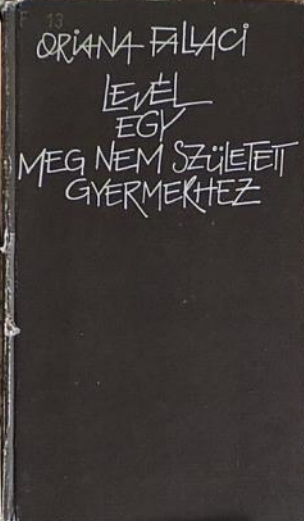 F 13
ORIANA FALLACI
LEVÉL
EGY
MEG NEM SZÜLETETT
GYERMEKHEZ